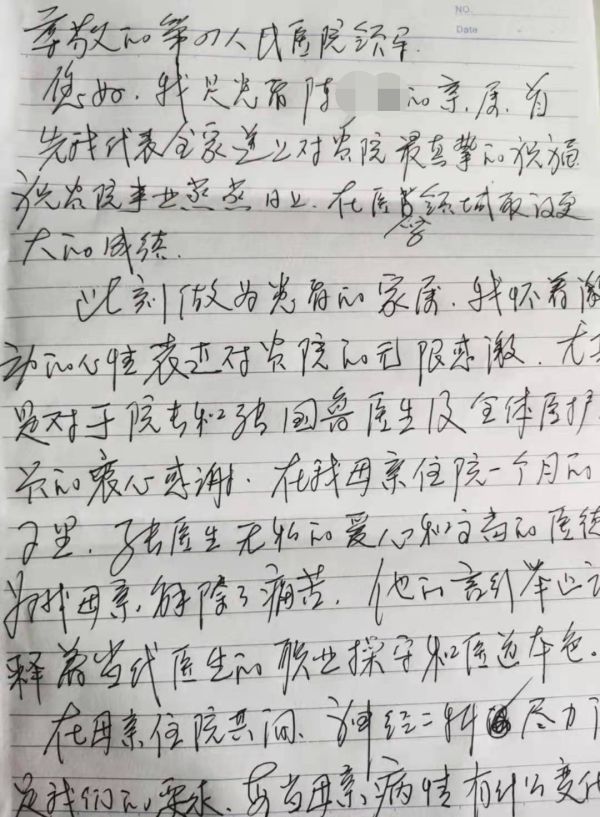 NO.
Date
尊敬的第四人民医院领导.
您好.我是患者陈的亲属.首
先我代表全家送上对贵院最真挚的祝福
祝贵院事业蒸蒸日上.在医学领域取得更
大的成绩.
此刻做为患者的家属.我怀着激
动的心情表述对贵院的无限感激.尤其
是对于院长和张国鲁医生及全体医护
员的衷心感谢.在我母亲住院一个月的
日子里.张医生无私的爱心和高尚的医德
为我母亲解除了痛苦.他的言行举止诠
释着当代医生的职业操守和医道本色.
在母亲住院其间.神经二科尽力
足我们的要求.每当母亲病情有什么变化